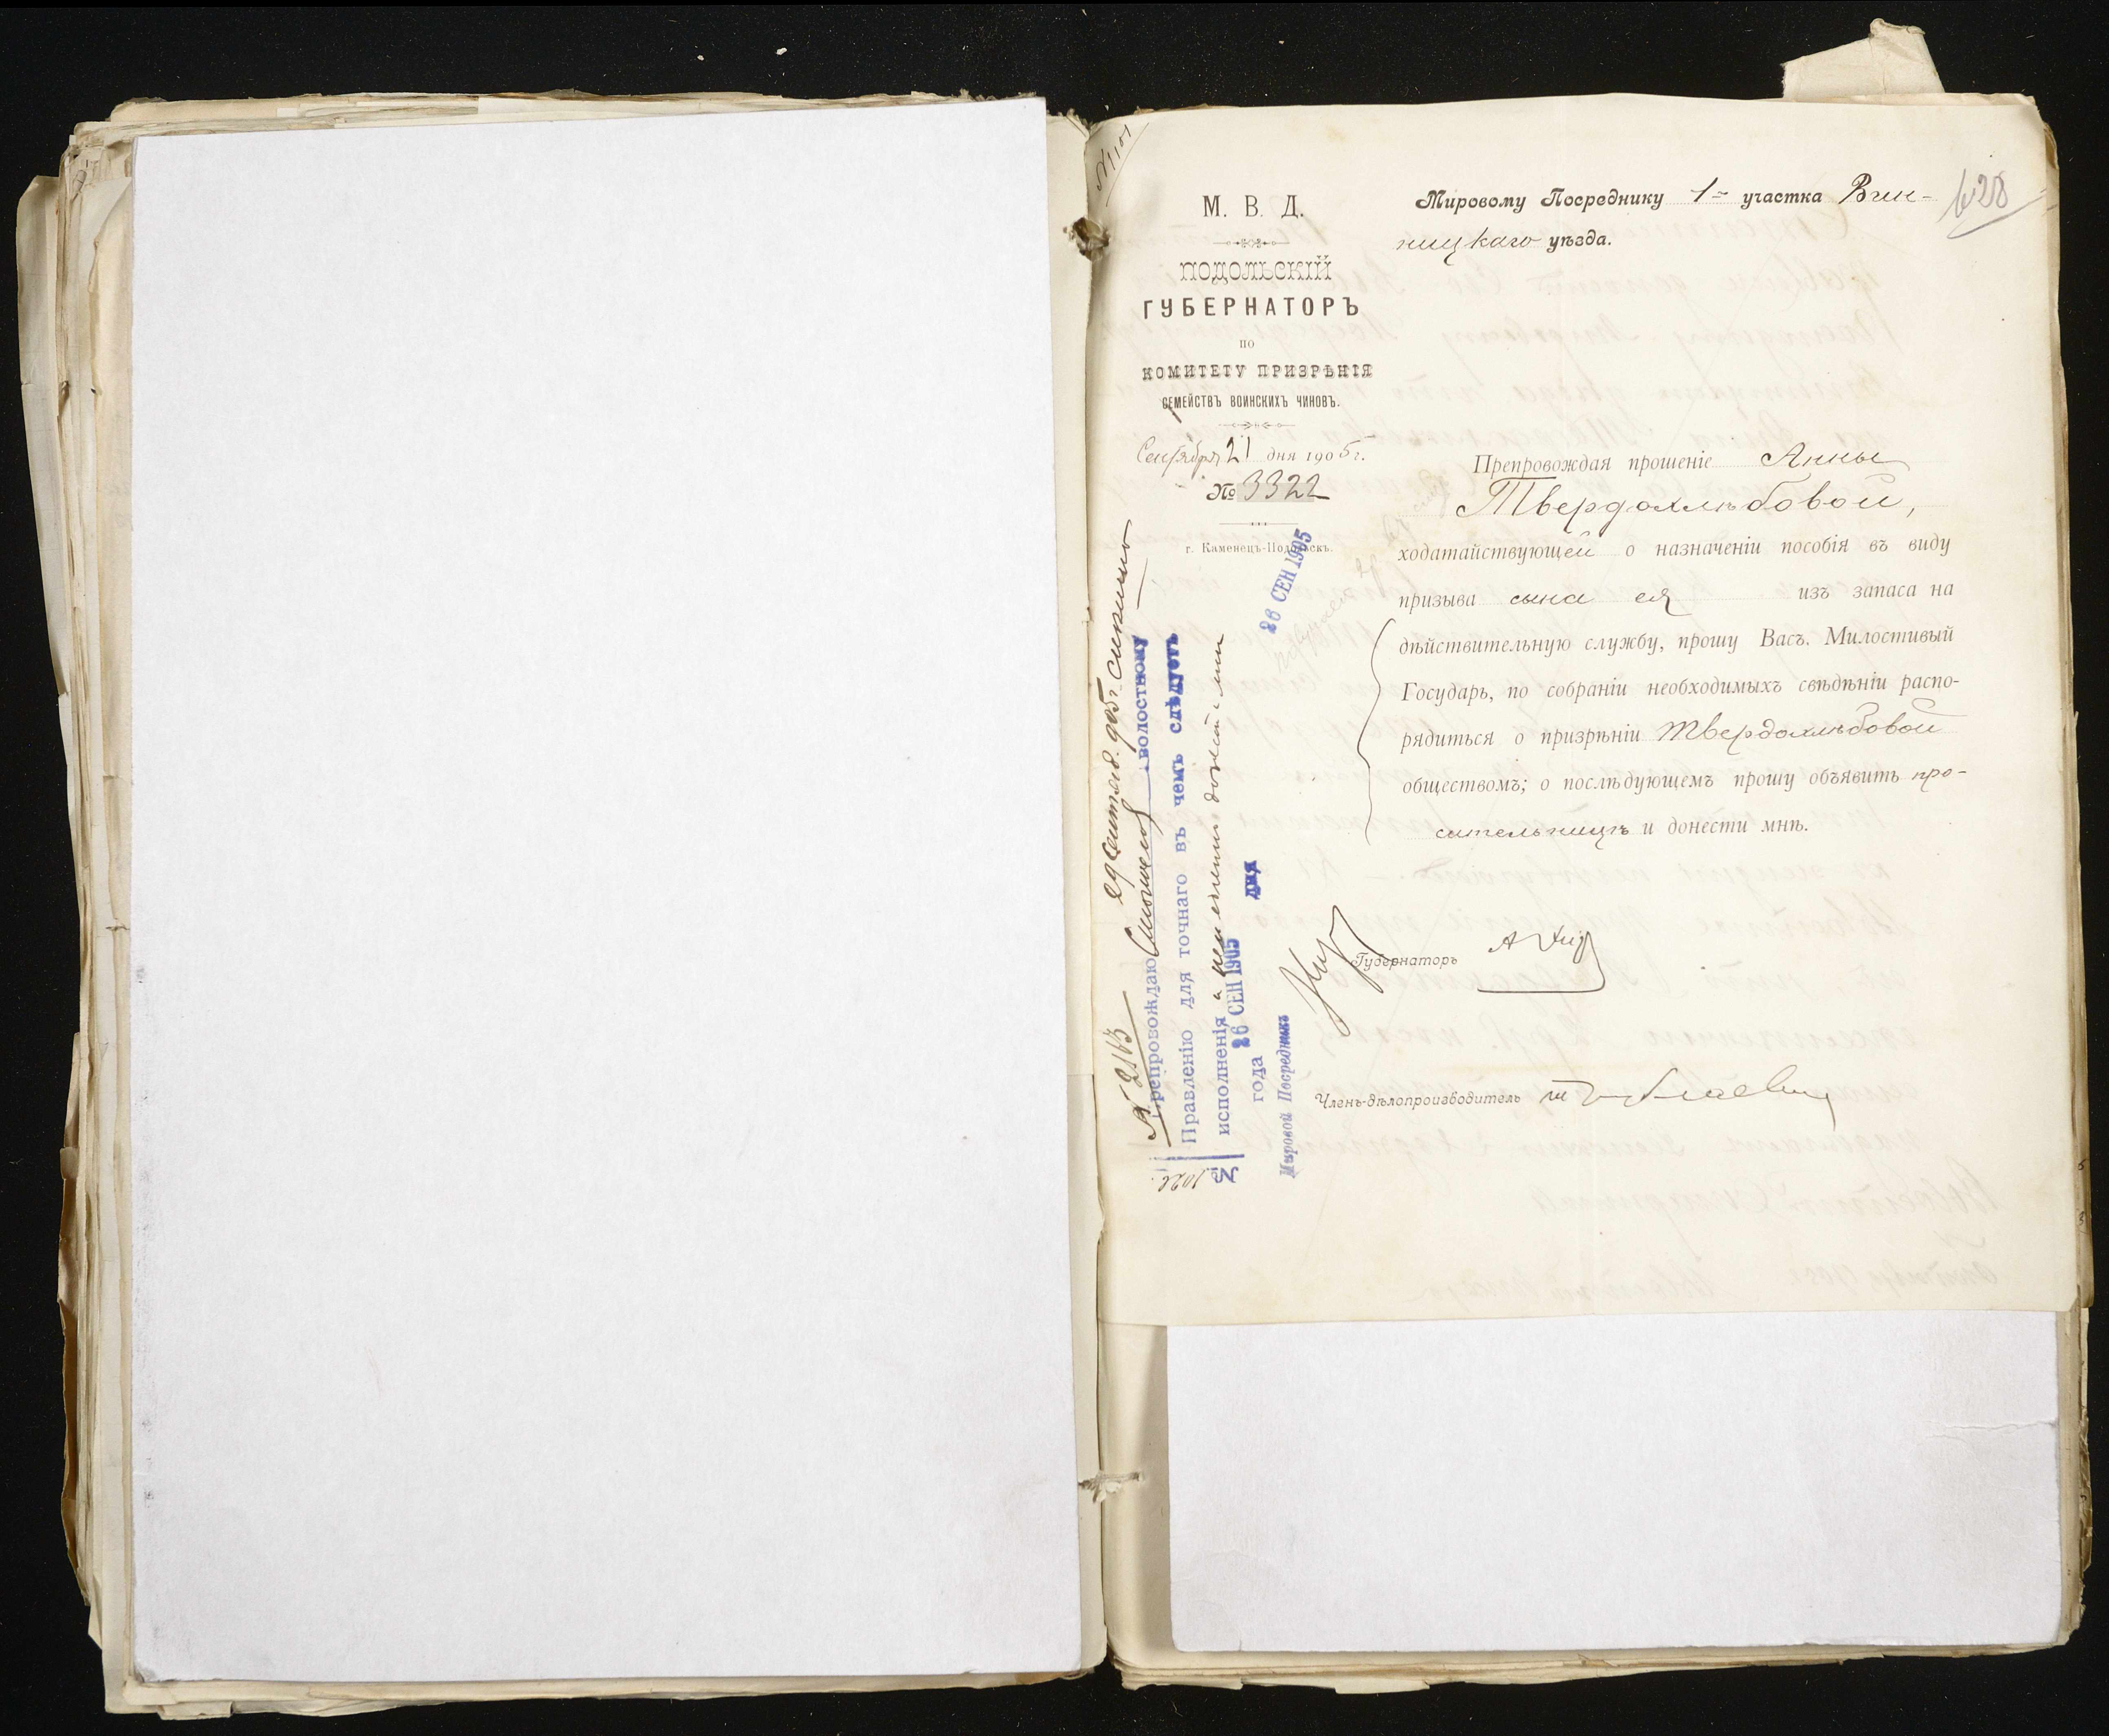 М. В. Д.
ПОДОЛЬСКІЙ
ГУБЕРНАТОРЪ
ПО
КОМИТЕТУ ПРИЗРѢНІЯ
СЕМЕЙСТВЪ ВОИНСКИХЪ ЧИНОВЪ.
Сентября 21 дня 1905 г.
№ 3322
г. Каменецъ-Подольскъ.
Мировому Посреднику 1-го участка Вин-
ницкаго уѣзда.
628
Препровождая прошеніе Анны
Твердохлѣбовой,
ходатайствующей о назначеніи пособія въ виду
призыва сына ея изъ запаса на
дѣйствительную службу, прошу Васъ. Милостивый
Государь, по собраніи необходимыхъ свѣдѣніи распо-
рядиться о призрѣніи Твердохлѣбовой
обществомъ; о послѣдующемъ прошу объявить про-
сительницѣ и донести мнѣ.
Губернаторъ
Членъ-дѣлопроизводитель
26 СЕН 1905
№ 2163
Препровождаю волостному
Правленію для точнаго въ чемъ слѣдуетъ
исполненія и
26 СЕН 1905 дня
года
№
Мировой Посредникъ